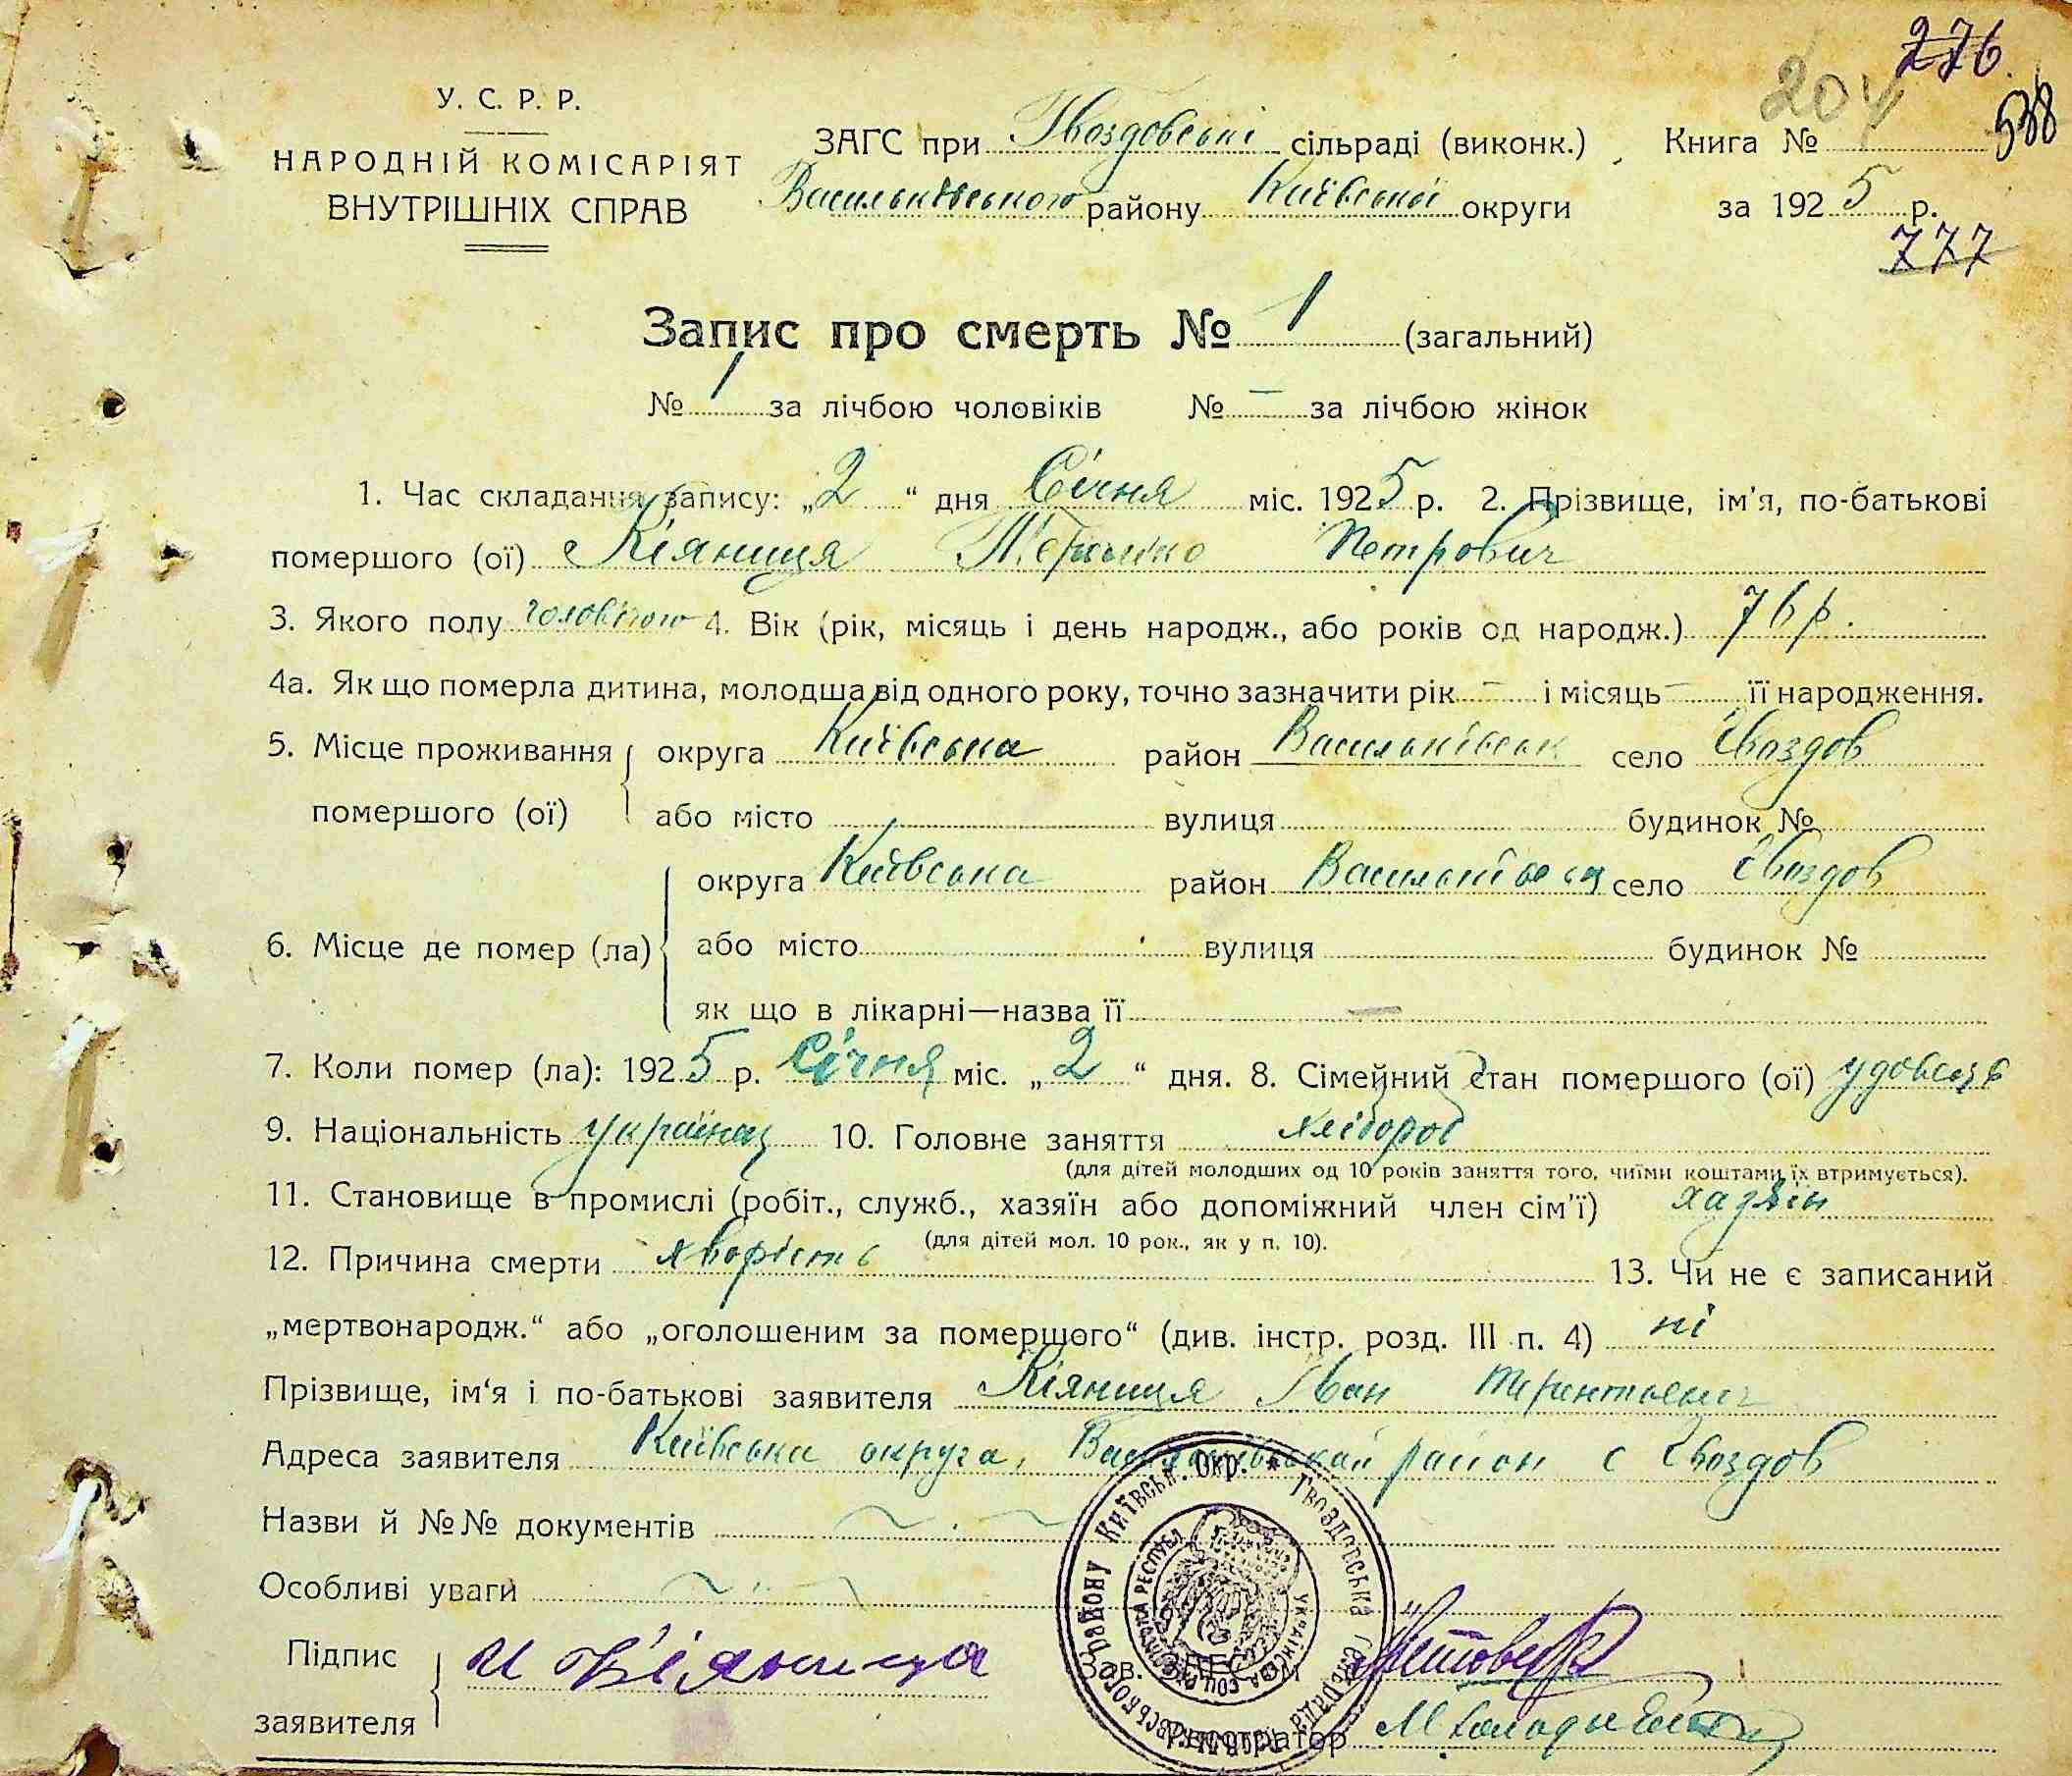 276
204
538
У. С. Р. Р.
НАРОДНІЙ КОМІСАРІЯТ
ВНУТРІШНІХ СПРАВ
ЗАГС при Гвоздовські сільраді (виконк.) Книга №
Васильківського району Київської округи за 1925 р.
777
Запис про смерть № 1 (загальний)
№ 1 за лічбою чоловіків № — за лічбою жінок
1. Час складання запису: „2“ дня Січня міс. 1925 р. 2. Прізвище, ім'я, по-батькові
помершого (ої) Кіяниця Петрович
3. Якого полу 4. Вік (рік, місяць і день народж., або років од народж.) 76 р.
4а. Як що померла дитина, молодша від одного року, точно зазначити рік — і місяць — її народження.
5. Місце проживання округа Київська район Васильківськ село Гвоздов
помершого (ої) або місто вулиця будинок №
округа Київська район село Гвоздов
6. Місце де помер (ла) або місто вулиця будинок №
як що в лікарні—назва її —
7. Коли помер (ла): 1925 р. Січня міс. „2“ дня. 8. Сімейний стан помершого (ої) удовець
9. Національність українец 10. Головне заняття хлібороб
(для дітей молодших од 10 років заняття того, чиїми коштами їх втримується).
11. Становище в промислі (робіт., служб., хазяїн або допоміжний член сім'ї) хазяін
(для дітей мол. 10 рок., як у п. 10).
12. Причина смерти хворість 13. Чи не є записаний
„мертвонародж.“ або „оголошеним за помершого“ (див. інстр. розд. III п. 4) ні
Прізвище, ім'я і по-батькові заявителя Кіяниця Іван Терентьевич
Адреса заявителя Київська округа, район с Гвоздов
Назви й №№ документів
Особливі уваги
Підпис
заявителя
И Кіяница
Зав. ЗАГС'ом
Регістратор
Району Київськ. Окр. * Гвоздовська сільрада